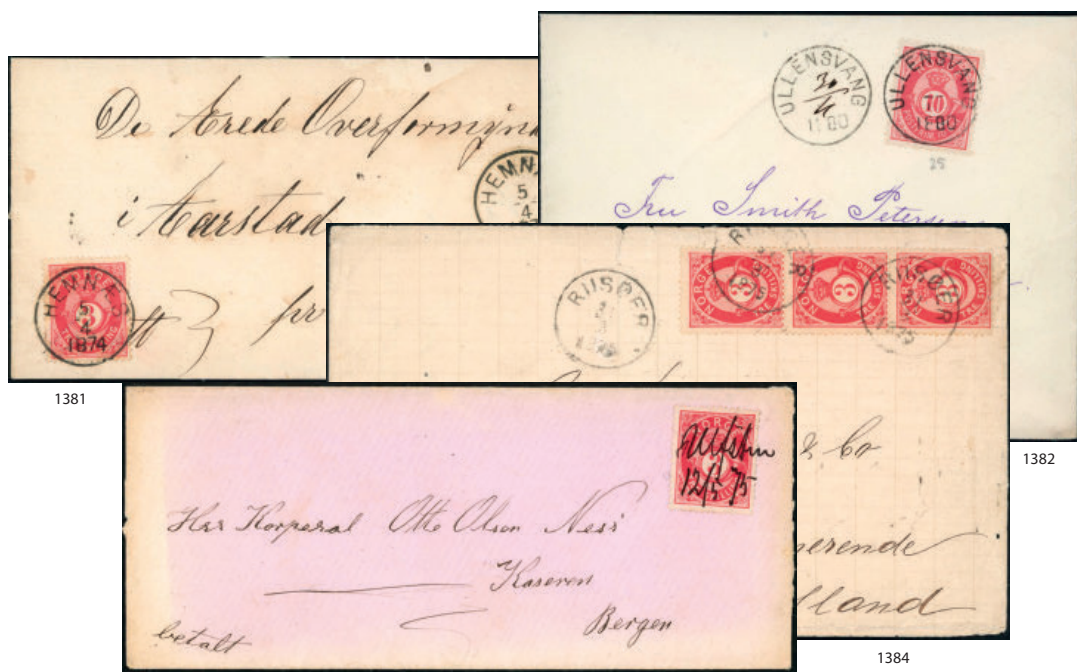 De Ærede Overformynd
i Aarstad
HEMN
5
4
HEMNÆS
5
4
1874
3
pr
1381
ULLENSVANG
30
11 80
ULLENSVANG
10
11 80
25
Fru Smith Petersen
1382
RIISØER
NORGE 3
3
RIISØER
& Co
erende
lland
1384
NORGE
3
Ulfsten
12/5 75
Herr Korperal Otto Olsen Ness
Kaseren
Bergen
betalt